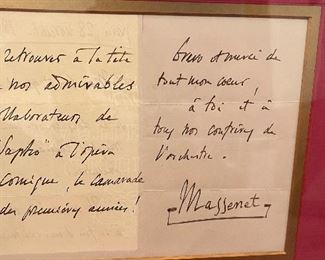 retrouver à la tête
nos admirables
collaborateurs de
"Sapho" à l'Opéra
Comique, le camarade
des premières années!
bravo et merci de
tout mon cœur!
à toi et à
tous nos confrères de
l'orchestre.
Massenet